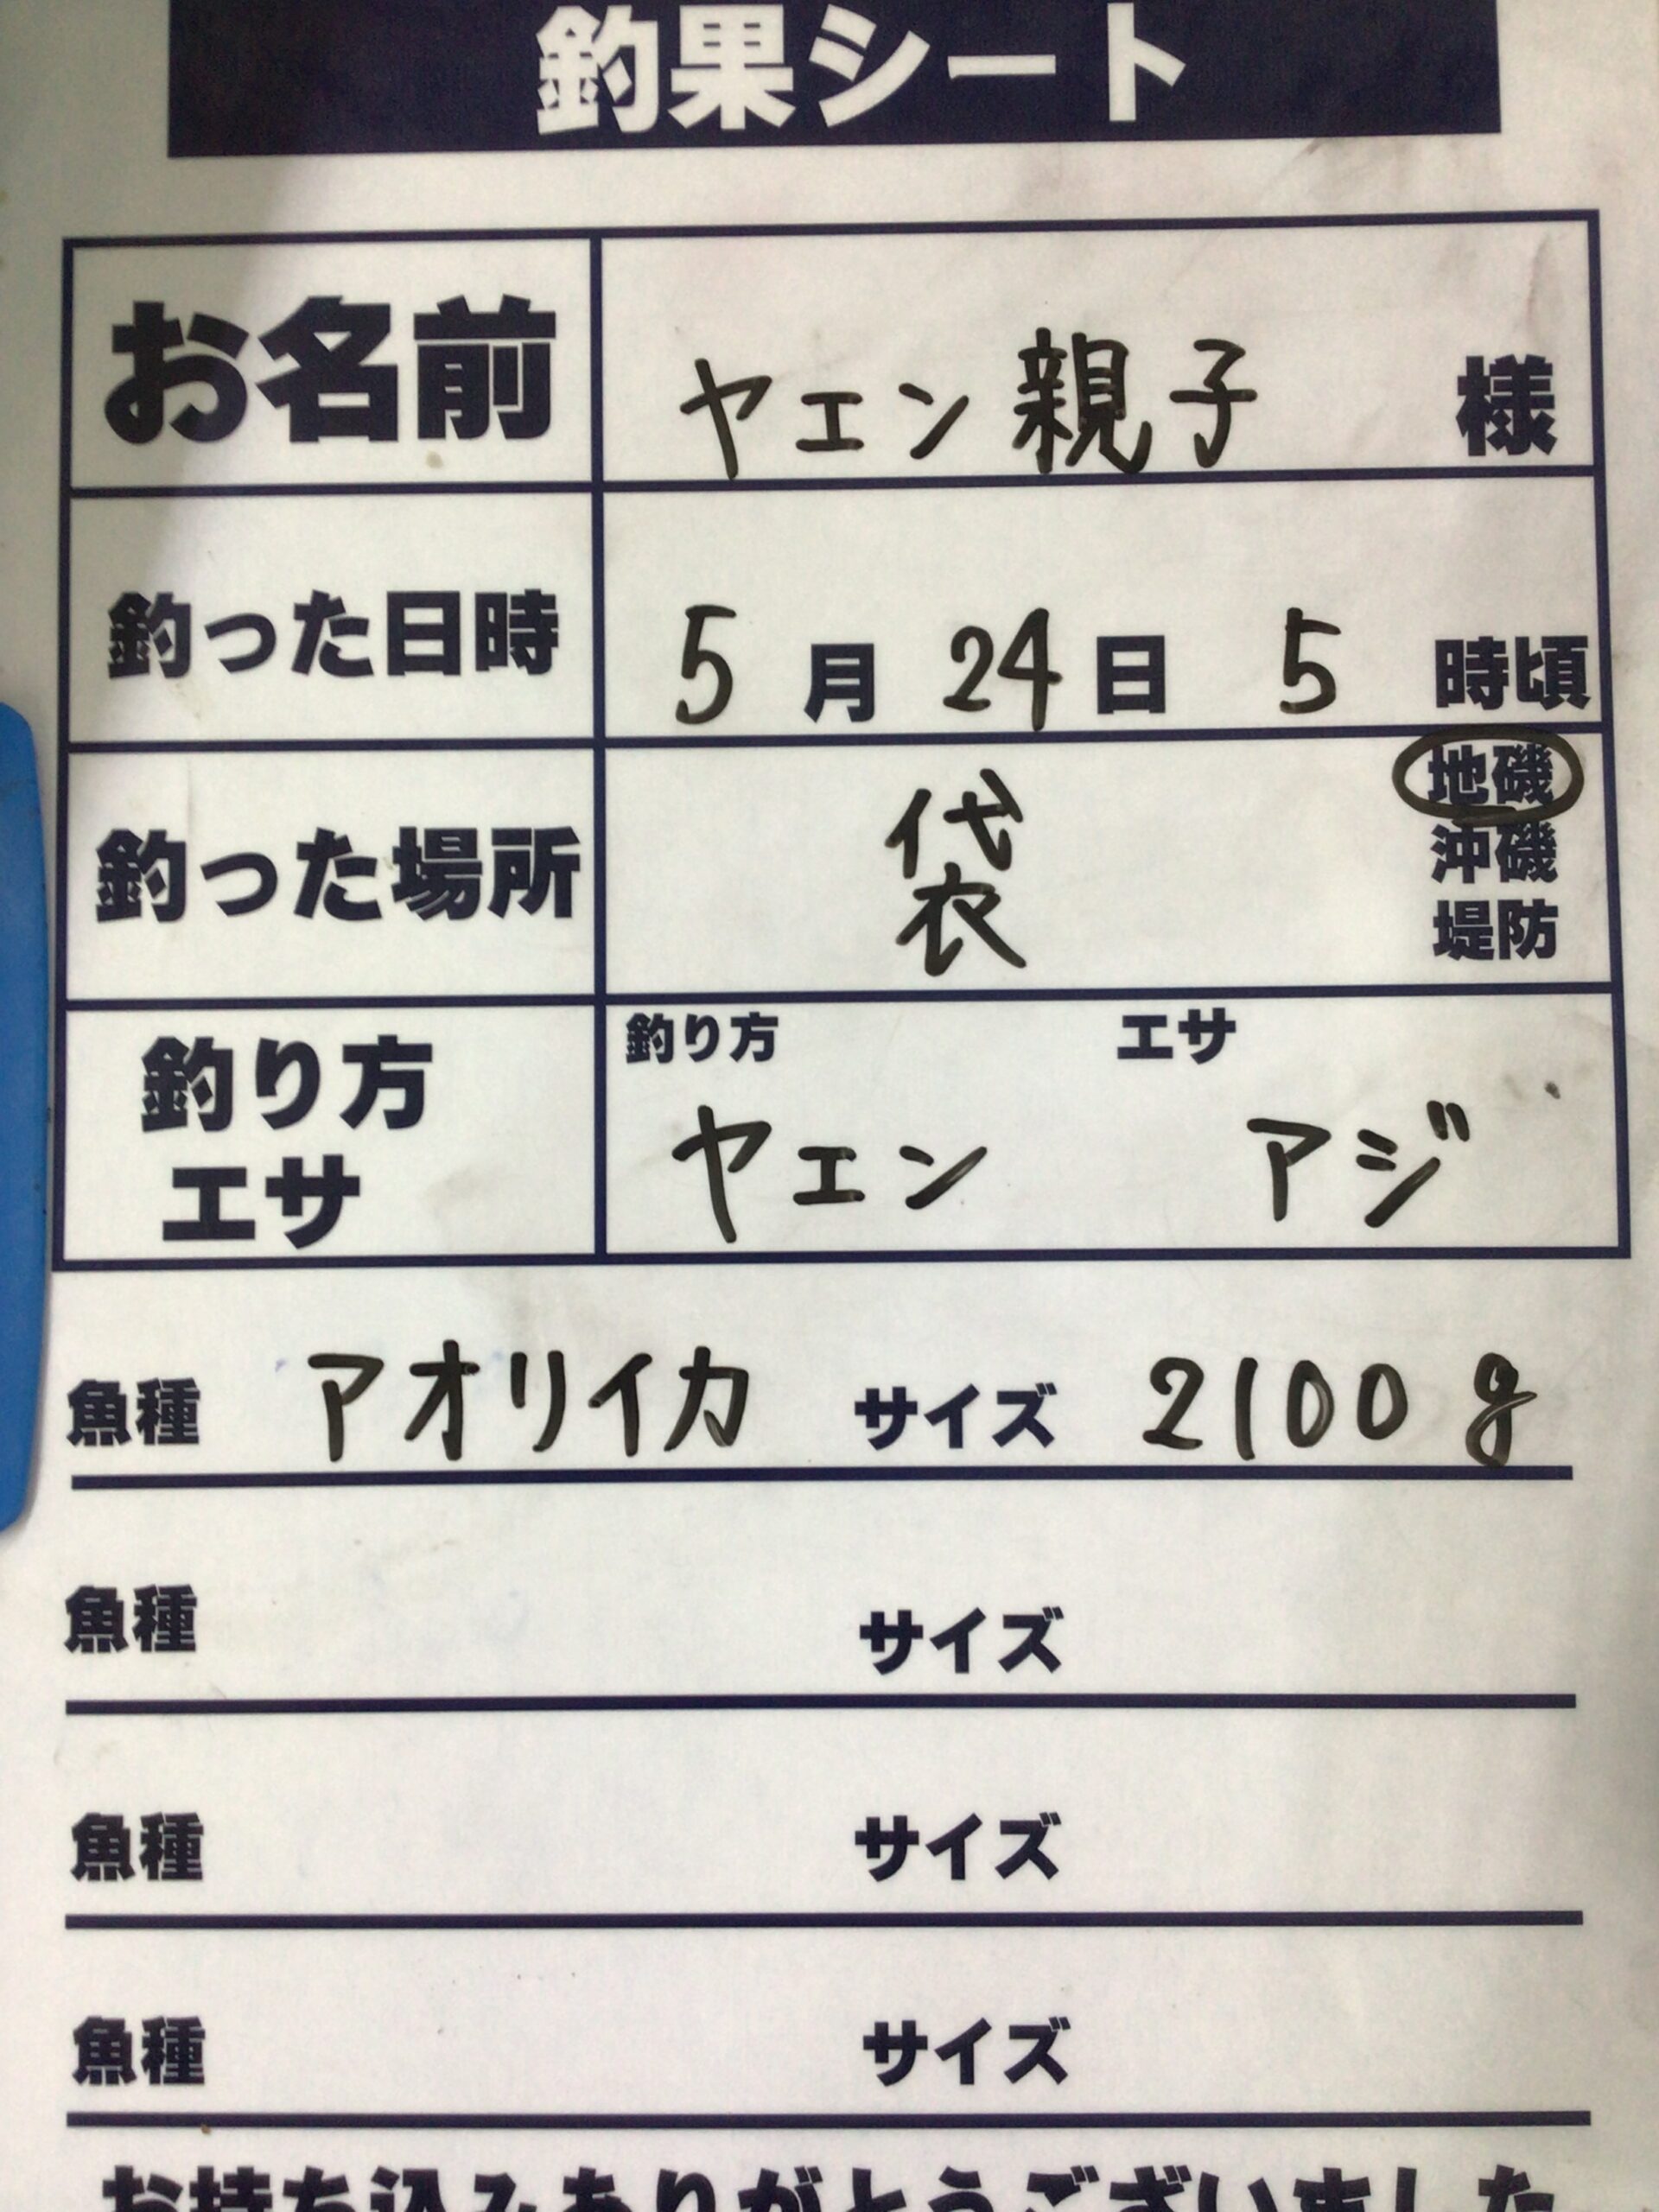 釣果シート
お名前 ヤエン親子 様
釣った日時 5月24日 5時頃
釣った場所 袋 地磯
沖磯
堤防
釣り方 エサ
釣り方
エサ
ヤエン アジ
魚種 アオリイカ サイズ 2100g
魚種 サイズ
魚種 サイズ
魚種 サイズ
お持ち込みありがとうございました